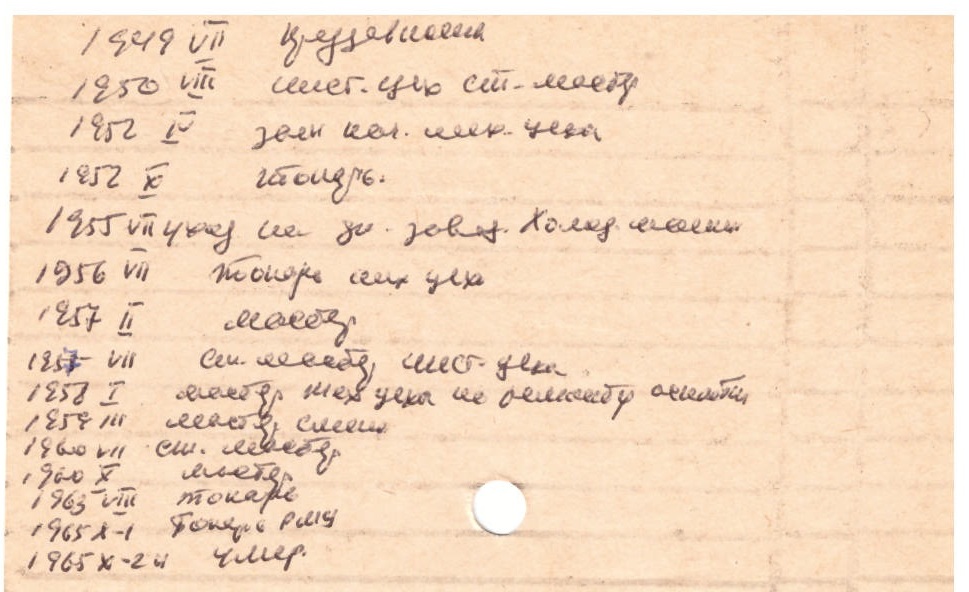 1949 VII
1950 VIII инст. цех ст. мастер
1952 IV зам нач. мех. цеха
1952 X токарь.
1955 VII уход на др. завод. Холод. машин
1956 VII токарь мех цеха
1957 II мастер
1957 VII ст. мастер инст. цеха
1958 I мастер мех цеха по ремонту оснастки
1959 III мастер смены
1960 VII ст. мастер
1960 X мастер
1963 VIII токарь
1965 X-1 Токарь РМЦ
1965 X-24 умер.